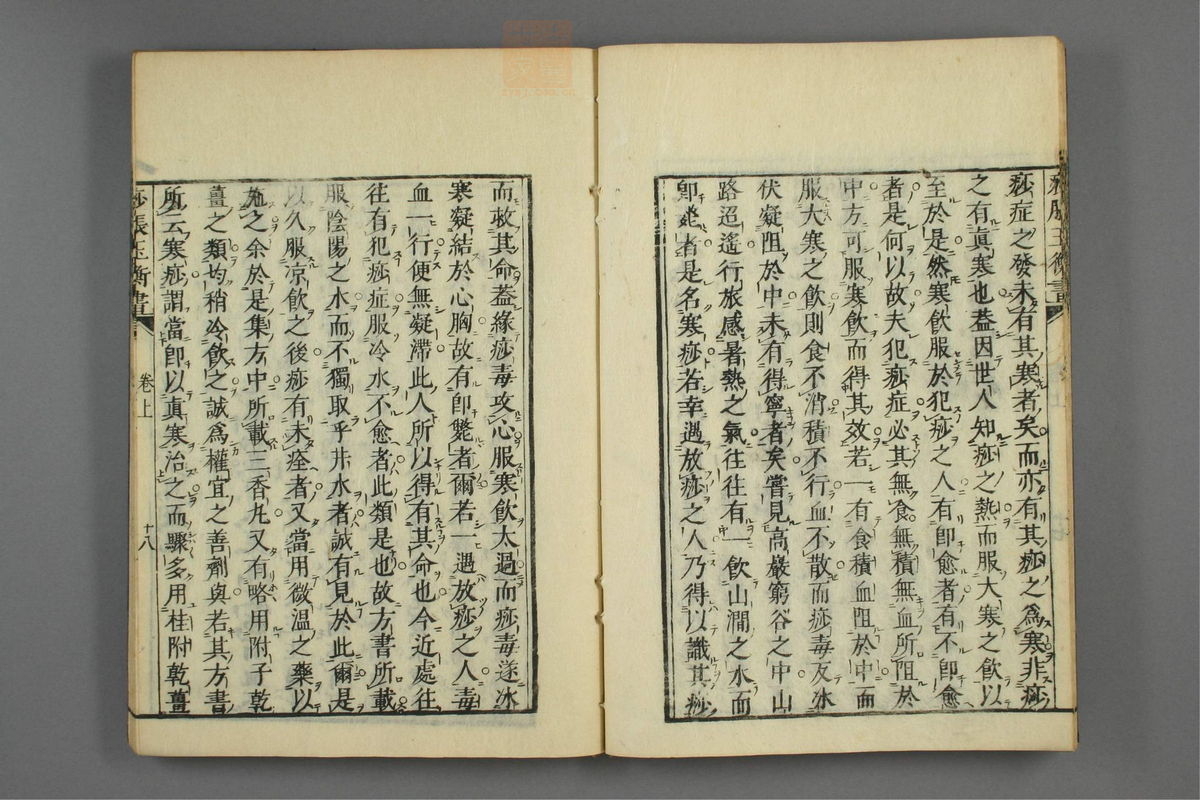 痧症之發未有其寒者矣而亦有其痧之爲寒非痧
之有眞寒也葢因世人知痧之熱而服大寒之飲以
至於是然寒飲服於犯痧之人有卽愈者有不卽愈
者是何以故夫犯痧症必其無食無積無血所阻於
中方可服寒飲而得其效若一有食積血阻於中而
服大寒之飲則食不消積不行血不散而痧毒反冰
伏凝阻於中未有得寧者矣嘗見高巖窮谷之中山
路迢遙行旅感暑熱之氣往往有一飲山澗之水而
卽斃者是名寒痧若幸遇放痧之人乃得以識其痧
而救其命葢緣痧毒攻心服寒飲太過而痧毒遂冰
寒凝結於心胸故有卽斃者爾若一遇放痧之人毒
血一行便無凝滯此人所以得有其命也今近處往
往有犯痧症服冷水不愈者此類是也故方書所載
服陰陽之水而不獨取乎井水者誠有見於此爾是
以久服凉飲之後痧有未痊者又當用微溫之藥以
施之余於是集方中所載三香丸又有略用附子乾
薑之類均稍冷飲之誠爲權宜之善劑與若其方書
所云寒痧謂當卽以眞寒治之而驟多用桂附乾薑
痧脹玉衡書
卷上
十八